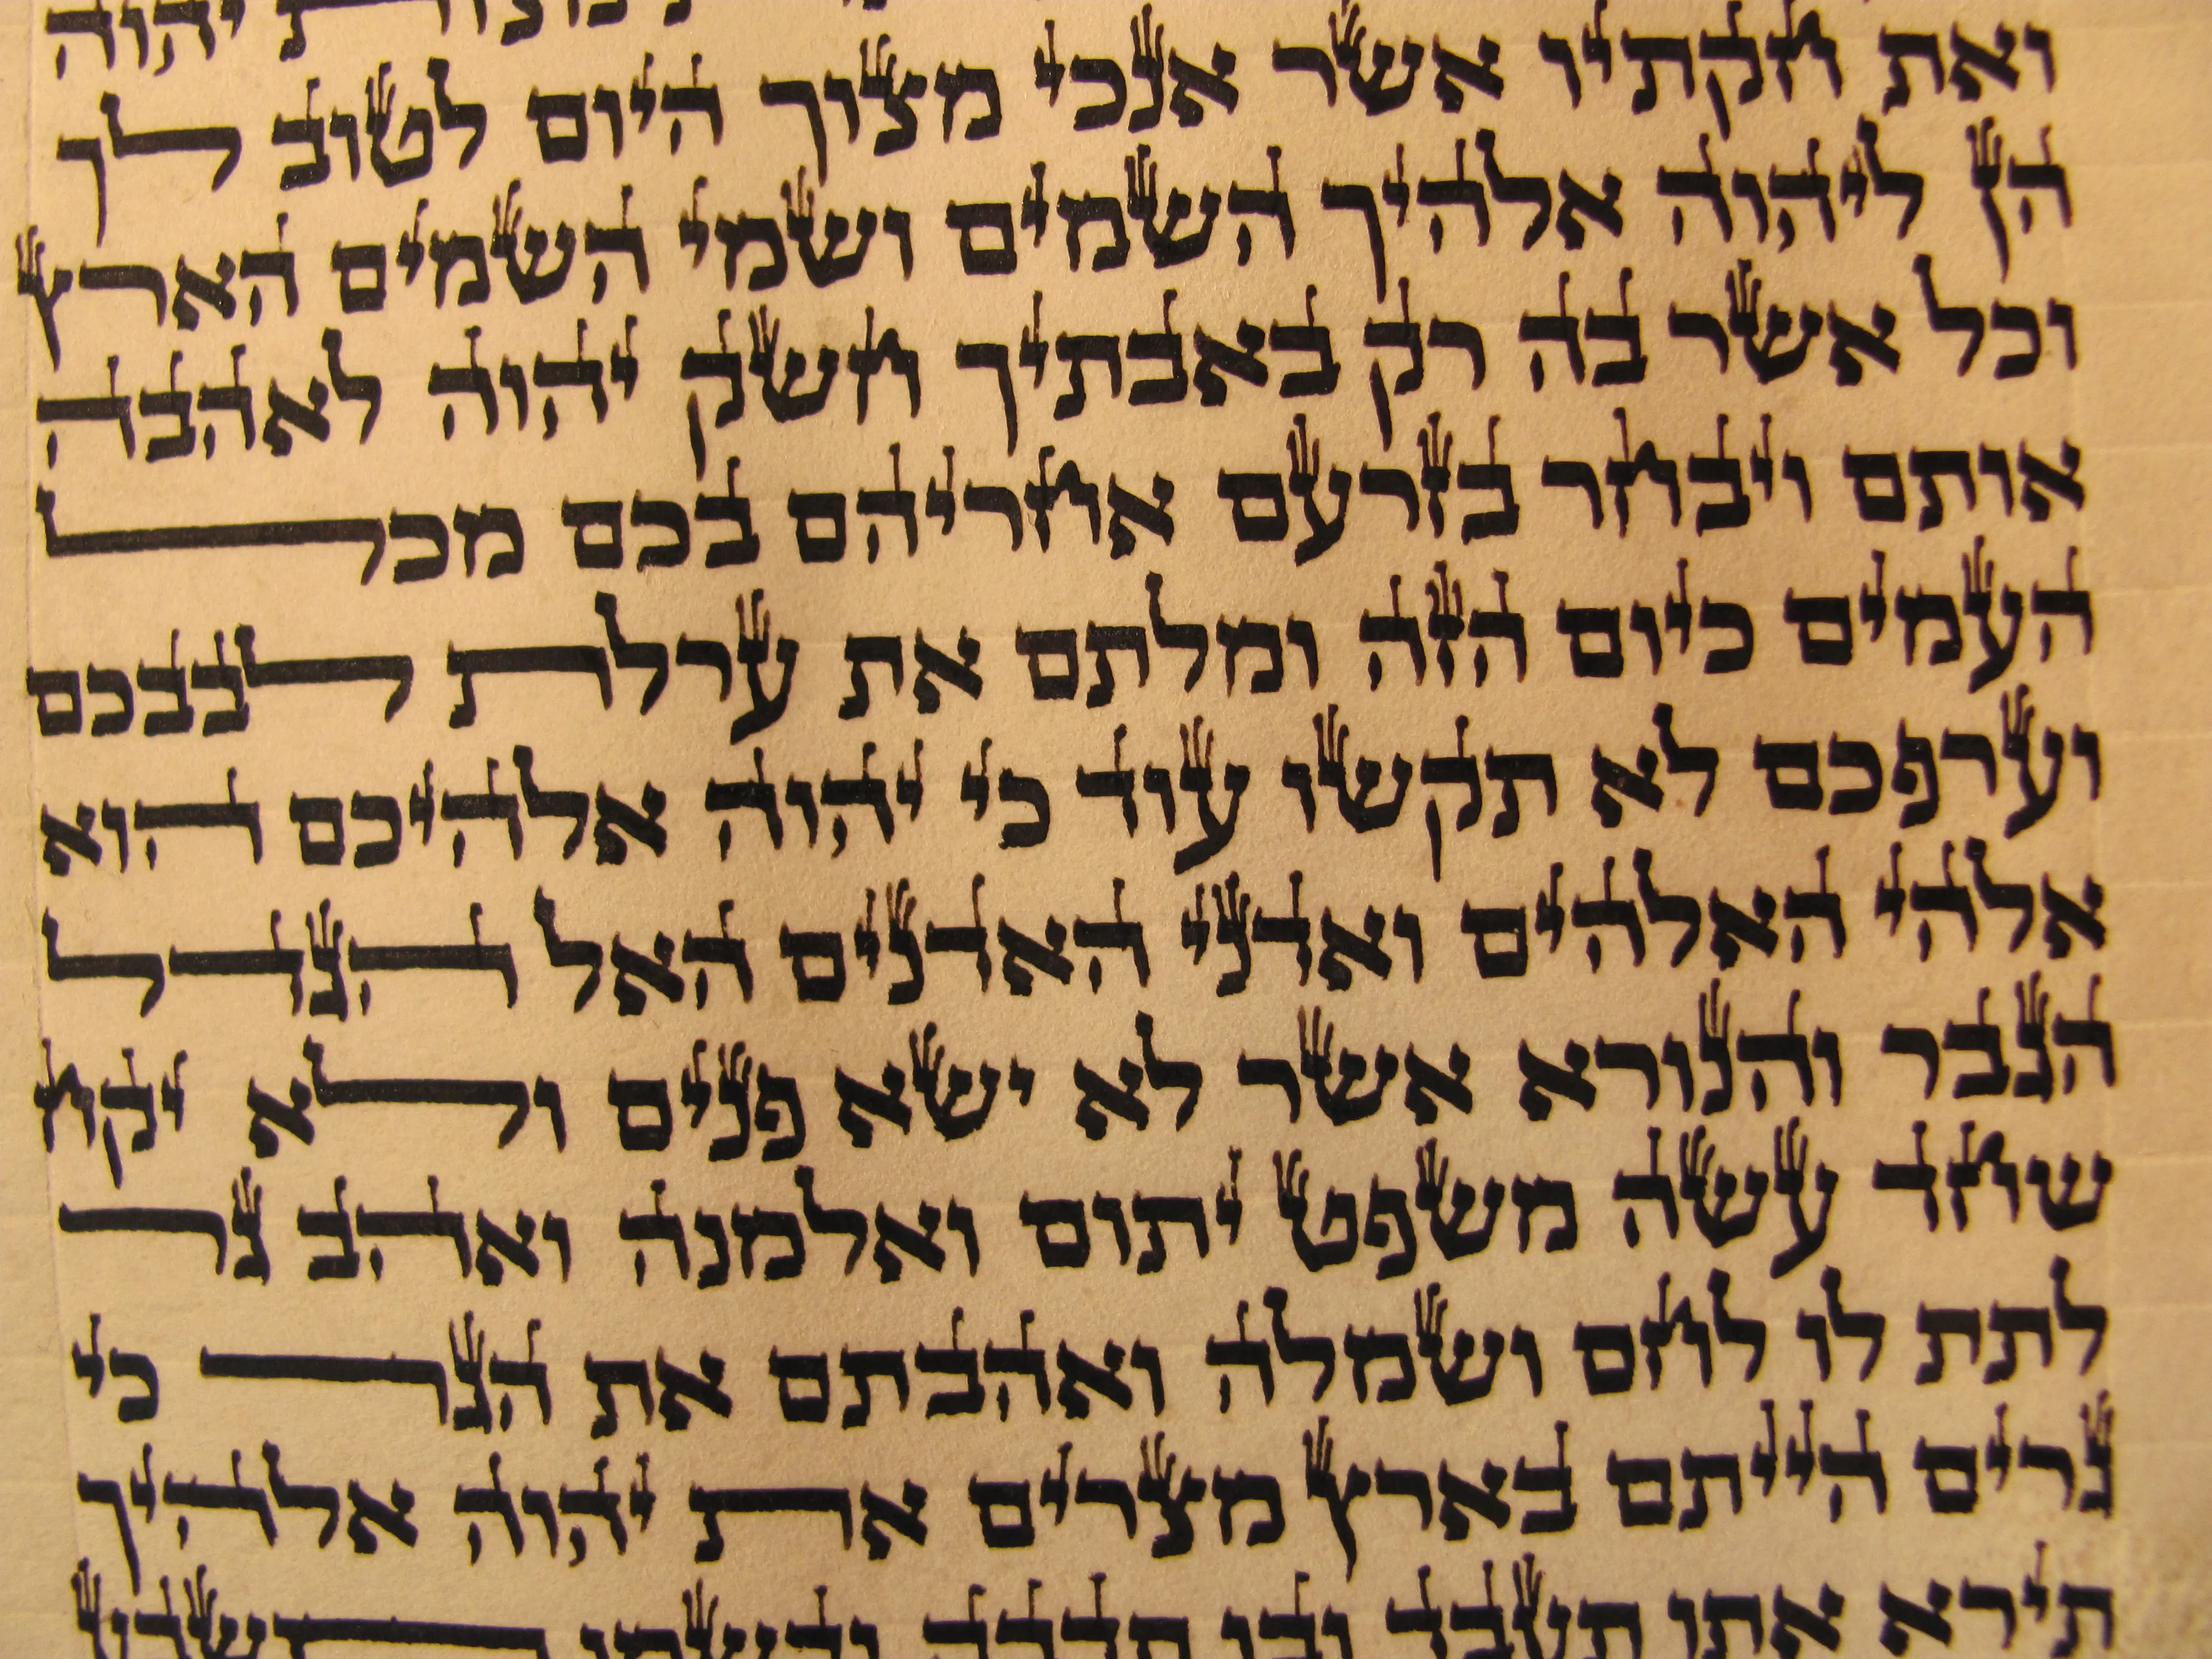 יהוה
ואת חקתיו אשר אנכי מצוך היום לטוב לך
הן ליהוה אלהיך השמים ושמי השמים הארץ
וכל אשר בה רק באבתיך חשק יהוה לאהבה
אותם ויבחר בזרעם אחריהם בכם מכל
העמים כיום הזה ומלתם את ערלת לבבכם
וערפכם לא תקשו עוד כי יהוה אלהיכם הוא
אלהי האלהים ואדני האדנים האל הגדל
הגבר והנורא אשר לא ישא פנים ולא יקח
שחד עשה משפט יתום ואלמנה ואהב גר
לתת לו לחם ושמלה ואהבתם את הגר כי
גרים הייתם בארץ מצרים את יהוה אלהיך
תירא אתו תעבד ובו תדבק ובשמו תשבע